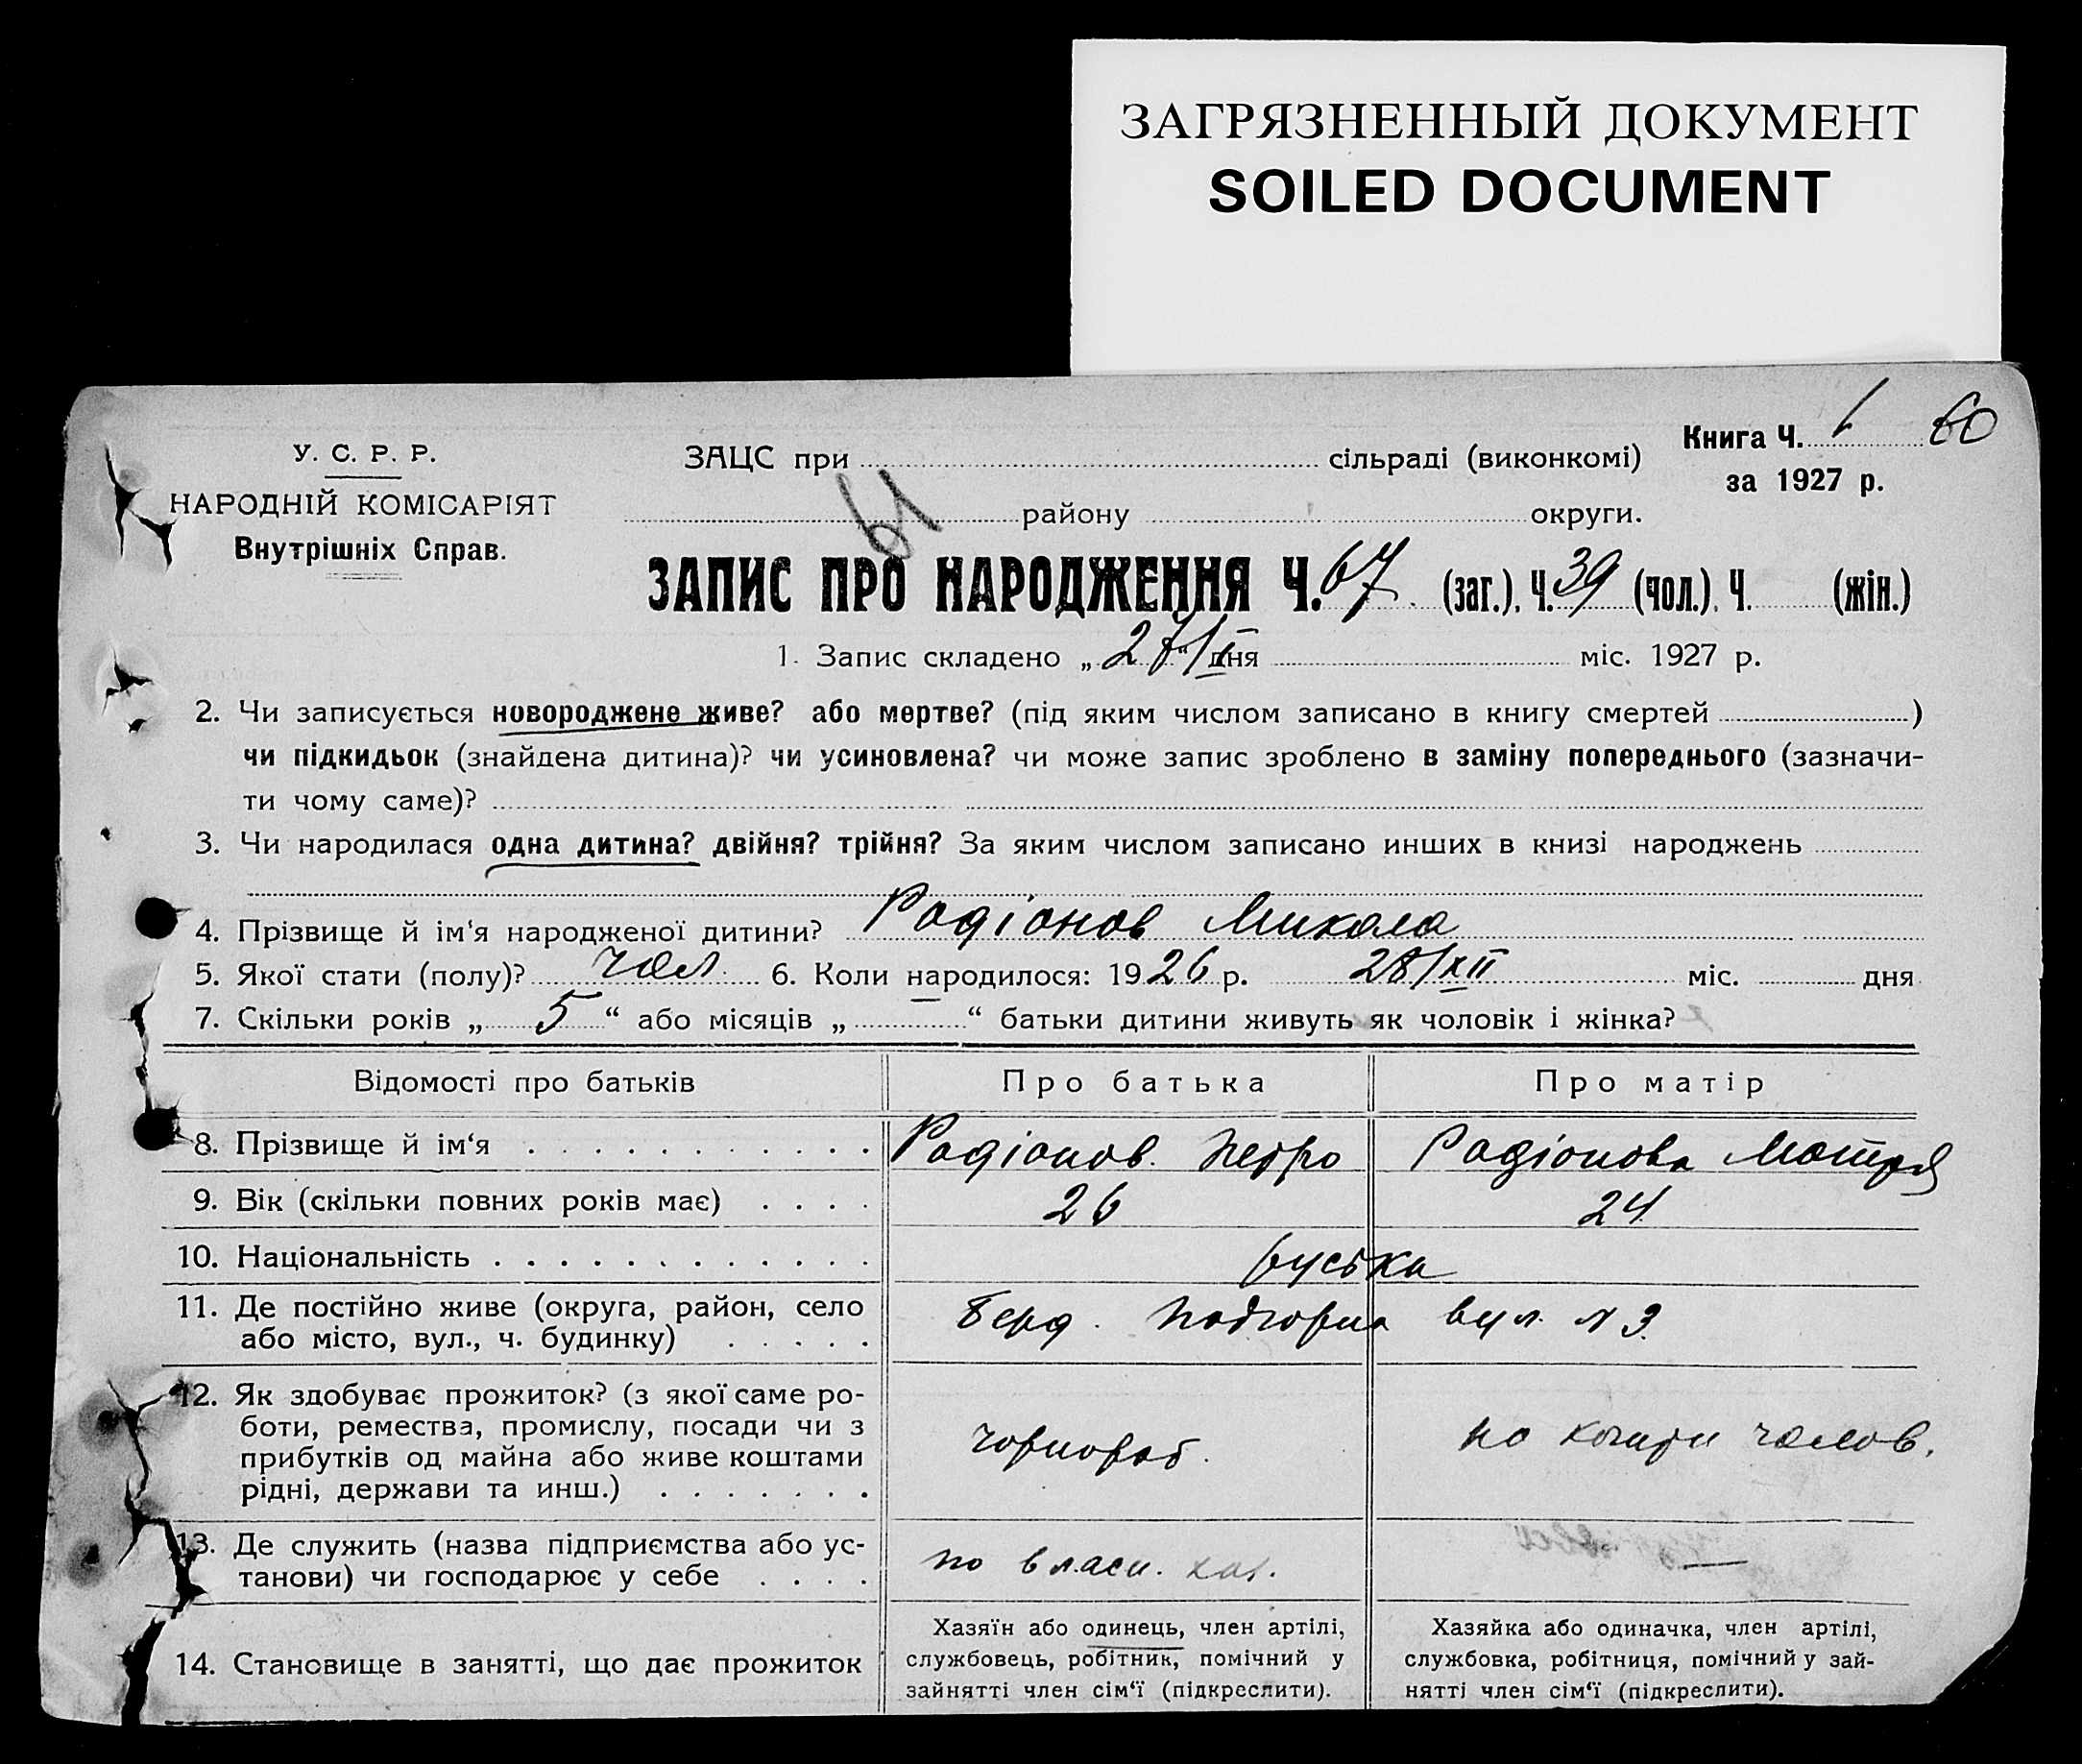 ЗАГРЯЗНЕННЫЙ ДОКУМЕНТ
SOILED DOCUMENT
Книга Ч. 1 60
за 1927 р.
У. С. Р. Р.
НАРОДНІЙ КОМІСАРІЯТ
Внутрішніх Справ.
ЗАЦС при сільраді (виконкомі)
району округи.
61
ЗАПИС ПРО НАРОДЖЕННЯ Ч. 67 (заг.), Ч. 39 (чол.), Ч. (жін.)
1. Запис складено „27/I“ дня міс. 1927 р.
2. Чи записується новороджене живе? або мертве? (під яким числом записано в книгу смертей )
чи підкидьок (знайдена дитина)? чи усиновлена? чи може запис зроблено в заміну попереднього (зазначи-
ти чому саме)?
3. Чи народилася одна дитина? двійня? трійня? За яким числом записано инших в книзі народжень
4. Прізвище й ім‘я народженої дитини? Радіонов Микола
5. Якої стати (полу)? чол. 6. Коли народилося: 1926 р. 28/XII міс. дня
7. Скільки років „ 5 “ або місяців „ — “ батьки дитини живуть як чоловік і жінка?
Відомості про батьків Про батька Про матір
8. Прізвище й ім‘я Радіонов Петро Радіонова Мотря
9. Вік (скільки повних років має) 26 24
10. Національність руська
11. Де постійно живе (округа, район, село
або місто, вул., ч. будинку) Берд. Подгорна вул. N 3.
12. Як здобуває прожиток? (з якої саме ро-
боти, ремества, промислу, посади чи з
прибутків од майна або живе коштами
рідні, держави та инш.) чорнороб. на кошти чолов.
13. Де служить (назва підприємства або ус-
танови) чи господарює у себе по власн. —
14. Становище в занятті, що дає прожиток
Хазяїн або одинець, член артілі,
службовець, робітник, помічний у
зайнятті член сім‘ї (підкреслити).
Хазяйка або одиначка, член артілі,
службовка, робітниця, помічний у зай-
нятті член сім‘ї (підкреслити).